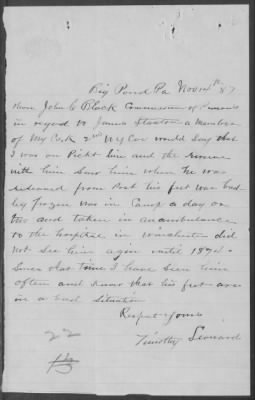 Big Pond Pa Nov 14th 87
Hon John C Black Commissioner of Pensions
in regard to James Staxton a member
of My Co k 2nd NY Cav would Say that
I was on Picket line and the
with him Saw him when he was
relieved from Post his feet was bad
ley frozen was in Camp a day or
two and taken in an ambulance
to the hospital in did
not See him again until 1874
Since that time I have Seen him
often and know that his feet are
in a bad Situation
Respect Yours
Timothy Leonard
22